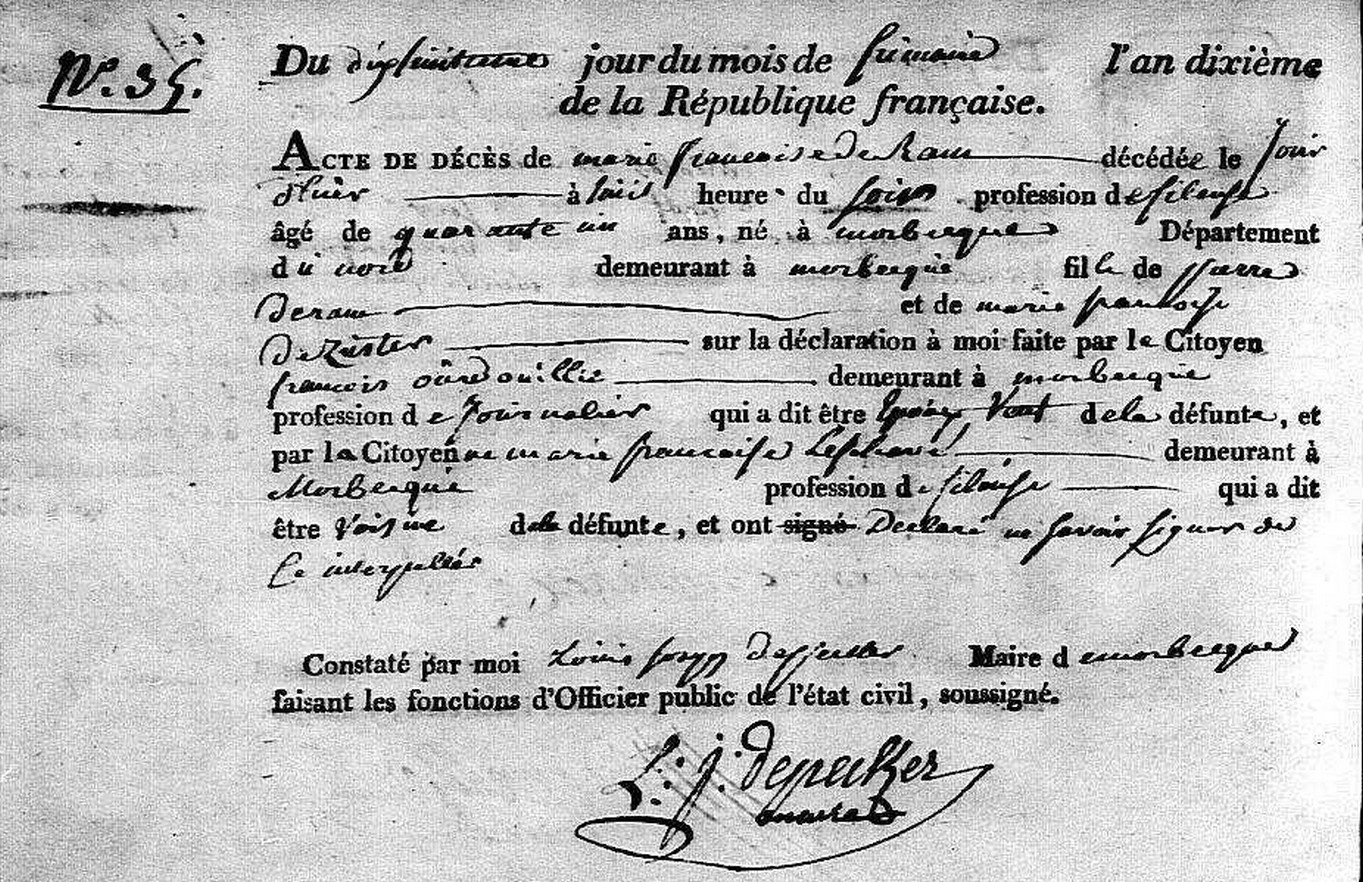 N.º 35.
Du dixhuitieme jour du mois de frimaire l'an dixième
de la République française.
ACTE DE DÉCÈS de marie francoise de Ram décédée le jour
d'hier à huit heure du soir profession de fileuse
âgé de quarante un ans, né à morbecque Département
du nord demeurant à morbecque fille de pierre
deram et de marie francoise
De Zuster sur la déclaration à moi faite par le Citoyen
francois demeurant à morbecque
profession de Journalier qui a dit être de la défunte, et
par la Citoyenne marie francoise demeurant à
Morbecque profession de fileuse qui a dit
être Voisine de la défunte, et ont signé Declaré ne savoir signer de
ce interpellés
Constaté par moi Louis joseph Depecker Maire de morbecque
faisant les fonctions d'Officier public de l'état civil, soussigné.
L. j. depecker
maire